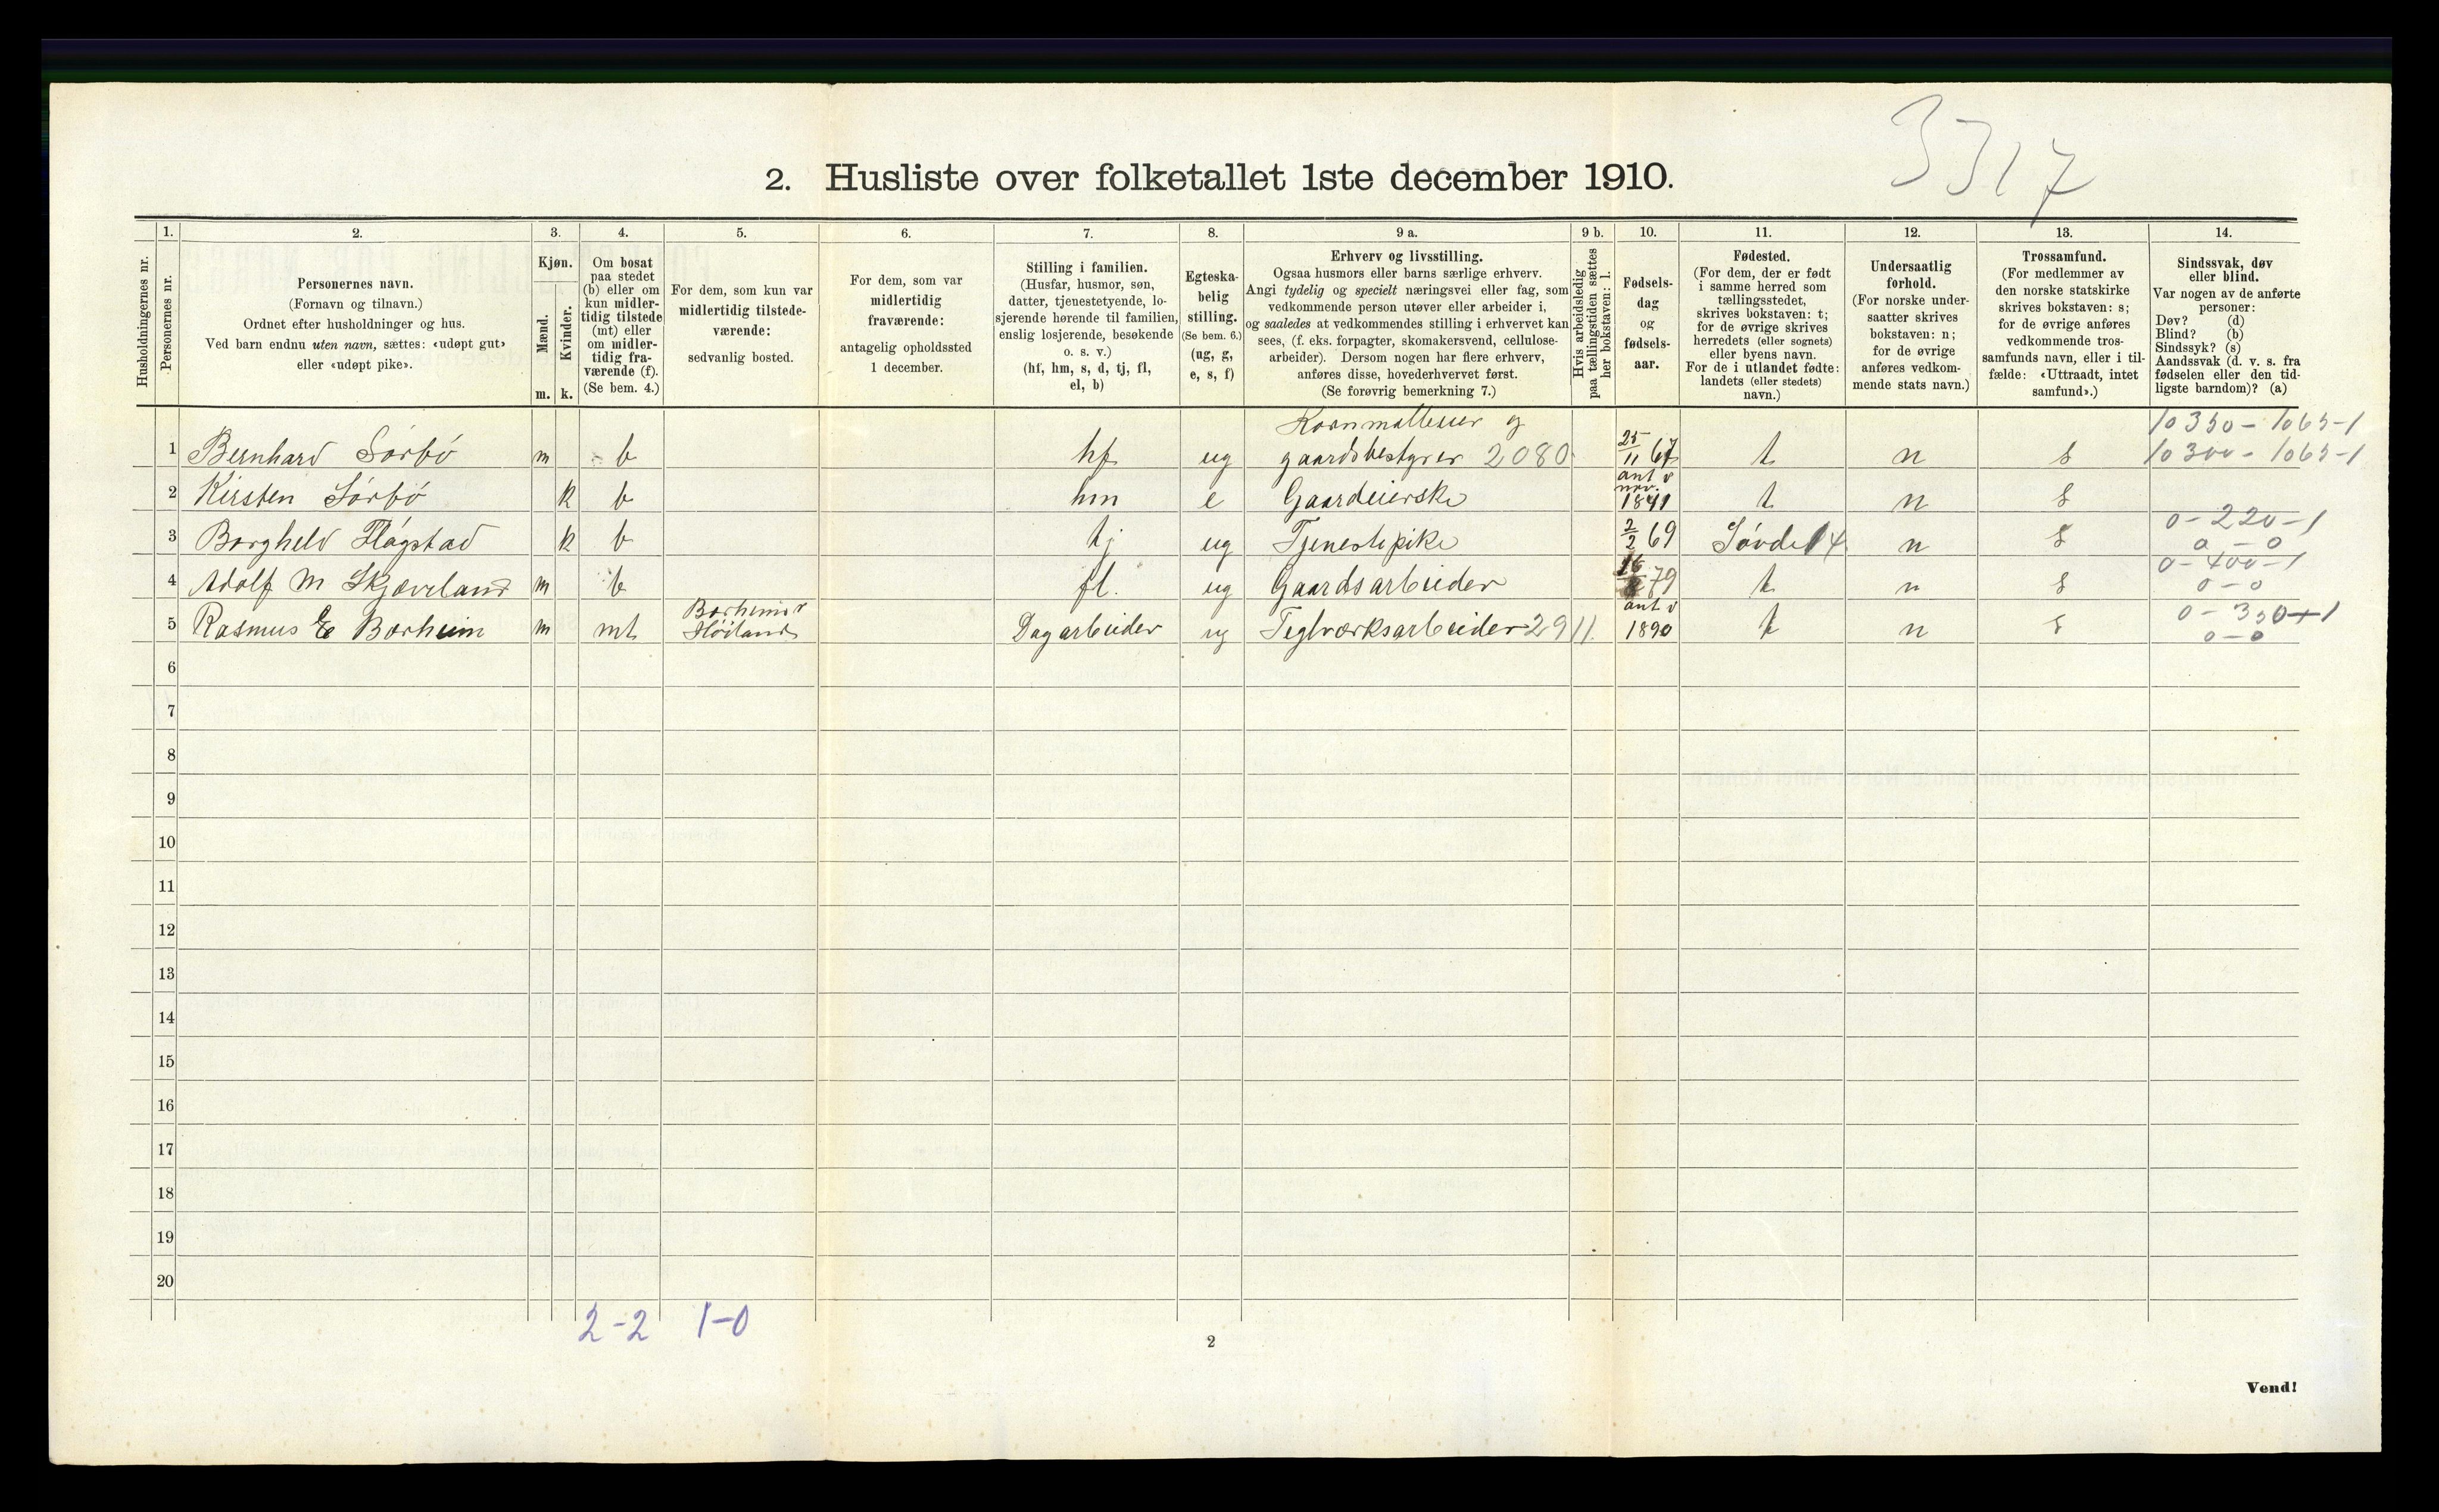 3317
2. Husliste over folketallet 1ste december 1910.
Husholdningernes nr.
1.
Personernes nr.
2.
Personernes navn.
(Fornavn og tilnavn.)
Ordnet efter husholdninger og hus.
Ved barn endnu uten navn, sættes: «udøpt gut»
eller «udøpt pike».
3.
Kjøn.
Mænd.
Kvinder.
m. k.
4.
Om bosat
paa stedet
(b) eller om
kun midler-
tidig tilstede
(mt) eller
om midler-
tidig fra-
værende (f).
(Se bem. 4.)
5.
For dem, som kun var
midlertidig tilstede-
værende:
sedvanlig bosted.
6.
For dem, som var
midlertidig
fraværende:
antagelig opholdssted
1 december.
7.
Stilling i familien.
(Husfar, husmor, søn,
datter, tjenestetyende, lo-
sjerende hørende til familien,
enslig losjerende, besøkende
o. s. v.)
(hf, hm, s, d, tj, fl,
el, b)
8.
Egteska-
belig
stilling.
(Se bem. 6.)
(ug, g,
e, s, f)
9 a.
Erhverv og livsstilling.
Ogsaa husmors eller barns særlige erhverv.
Angi tydelig og specielt næringsvei eller fag, som
vedkommende person utøver eller arbeider i,
og saaledes at vedkommendes stilling i erhvervet kan
sees, (f. eks. forpagter, skomakersvend, cellulose-
arbeider). Dersom nogen har flere erhverv,
anføres disse, hovederhvervet først.
(Se forøvrig bemerkning 7.)
9 b.
Hvis arbeidsledig
paa tællingstiden sættes
her bokstaven: l.
10.
Fødsels-
dag
og
fødsels-
aar.
11.
Fødested.
(For dem, der er født
i samme herred som
tællingsstedet,
skrives bokstaven: t;
for de øvrige skrives
herredets (eller sognets)
eller byens navn.
For de i utlandet fødte:
landets (eller stedets)
navn.)
12.
Undersaatlig
forhold.
(For norske under-
saatter skrives
bokstaven: n;
for de øvrige
anføres vedkom-
mende stats navn.)
13.
Trossamfund.
(For medlemmer av
den norske statskirke
skrives bokstaven: s;
for de øvrige anføres
vedkommende tros-
samfunds navn, eller i til-
fælde: «Uttraadt, intet
samfund».)
14.
Sindssvak, døv
eller blind.
Var nogen av de anførte
personer:
Døv? (d)
Blind? (b)
Sindssyk? (s)
Aandssvak (d. v. s. fra
fødselen eller den tid-
ligste barndom)? (a)
og 10350 - 1065-1
1 Bernhard Sørbø m b hf ug gaardsbestyrer 2080 25/11 67 t n s 10300 - 1065-1
ant. nov.
2 Kirsten Sørbø k b hm e Gaardeierske 1841 t n s
0-220-1
3 Borghild Fløgstad k b tj ug Tjenestepike 2/2 69 4 n s 0-0
0-400-1
4 Adolf M Skjæveland m b fl. ug Gaardsarbeider 79 t n s 0-0
Borheim ant 0-350+1
5 Rasmus E Borheim m mt Høiland Dagarbeider ug Teglværksarbeider 2911 1890 t n s 0-0
6
7
8
9
10
11
12
13
14
15
16
17
18
19
20
2-2 1-0
2
Vend!